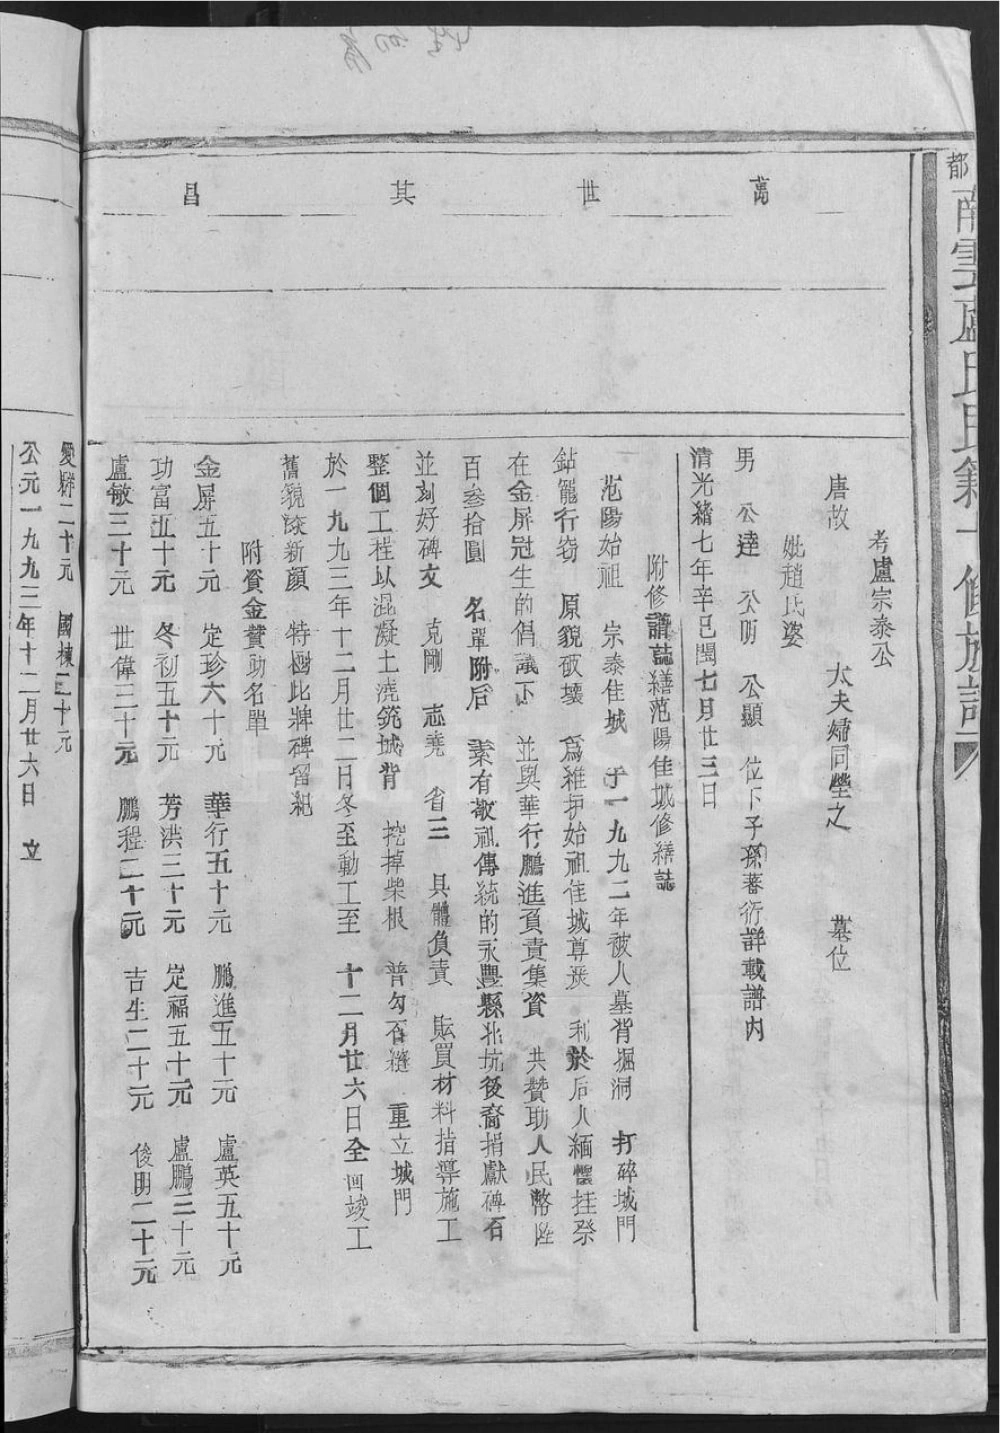 都
南雲盧氏
萬世其昌
考盧宗泰公
唐故
妣趙氏婆
太夫婦同塋之 墓位
男 公達 公昉 公顯 位下子孫蕃衍詳載譜內
清光緒七年辛巳閏七月廿三日
附修譜誌繕范陽佳城修繕誌
范陽始祖 宗泰佳城 于一九九二年被人墓背掘洞 打碎城門
鉆籠行窃 原貌破壞 爲維护始祖佳城尊 利於后人緬懷挂祭
在金屏冠生的倡議下 並與華行鵬進負責集資 共贊助人民幣陸
百叁拾圓 名單附后 素有敬祖傳統的永豐縣北坑後裔捐獻碑石
並刻好碑文 克剛 志堯 省三 具體負責 購買材料指導施工
整個工程以混凝土澆筑城背 挖掉柴根 普勾石縫 重立城門
於一九九三年十二月廿二日冬至動工至 十二月廿六日全面竣工
舊貌換新顏 特樹此牌碑留紀
附資金贊助名單
金屏五十元 定珍六十元 華行五十元 鵬進五十元 盧英五十元
功富五十元 冬初五十元 芳洪三十元 定福五十元 盧鵬三十元
盧敏三十元 世偉三十元 鵬程二十元 吉生二十元 俊明二十元
愛群二十元 國棟二十元
公元一九九三年十二月廿六日 立